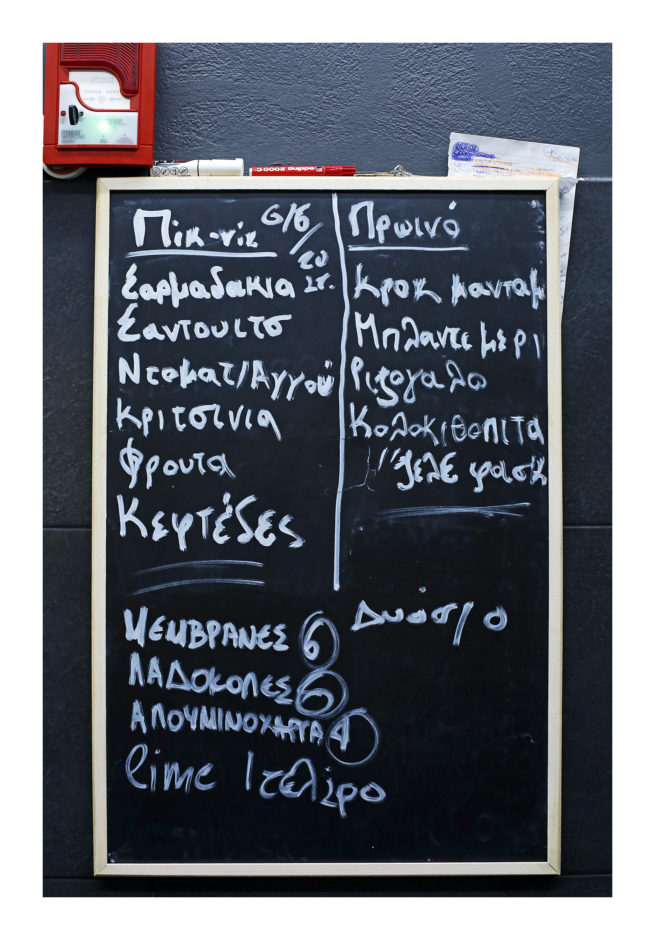 PRESS HERE
edding 2000 C
Πικ-νικ 6/6/20
Σαρμαδακια στ.
Σαντουιτσ
Ντοματ/Αγγου
Κριτσινια
Φρουτα
Κεφτέδες
Πρωινό
Κροκ μανταμ
Μπλαντε μερι
Ριζογαλο
Κολοκιθοπιτα
Ζελέ φρασκ
ΜΕΜΒΡΑΝΕΣ 6
ΛΑΔΟΚΟΛΕΣ 6
ΑΛΟΥΜΙΝΟΧΑΡΤΑ 4
Δυοσ/ο
Lime 1 τελάρο